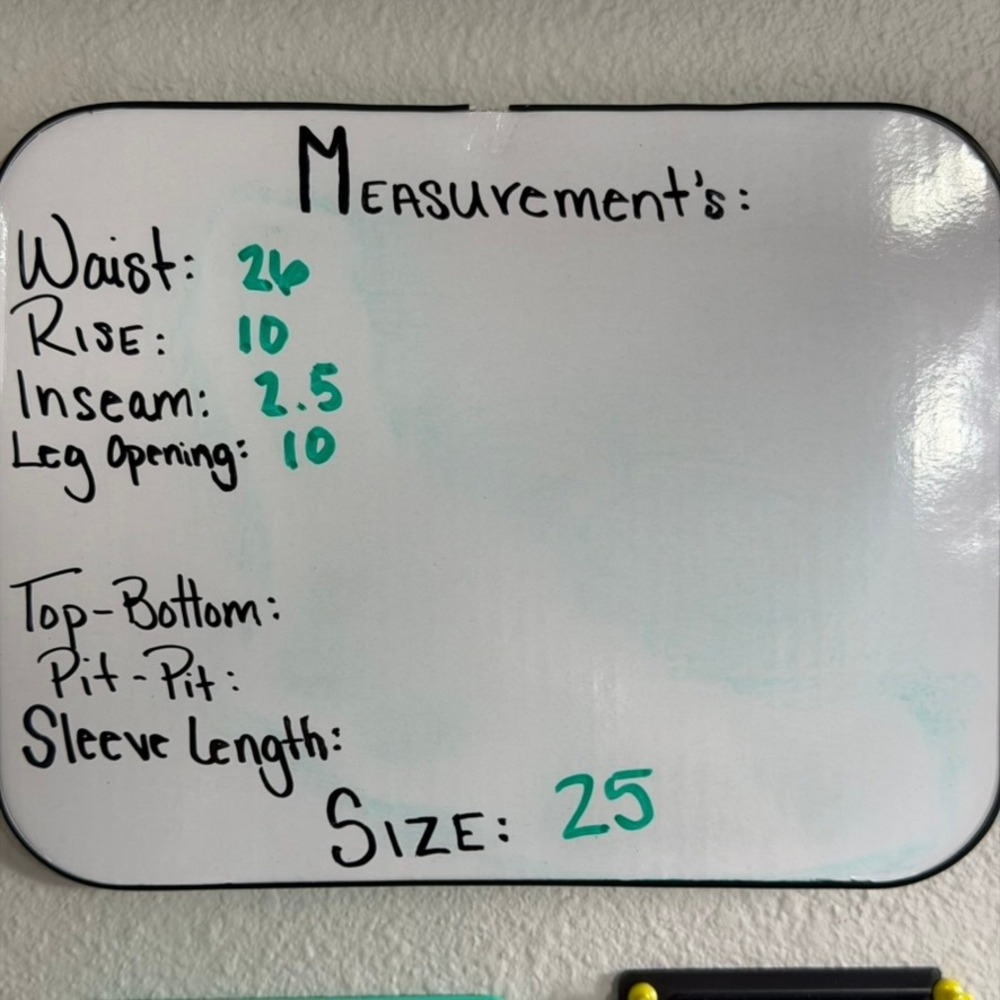 Measurement's:
Waist: 26
Rise: 10
Inseam: 2.5
Leg Opening: 10
Top-Bottom:
Pit-Pit:
Sleeve Length:
Size: 25